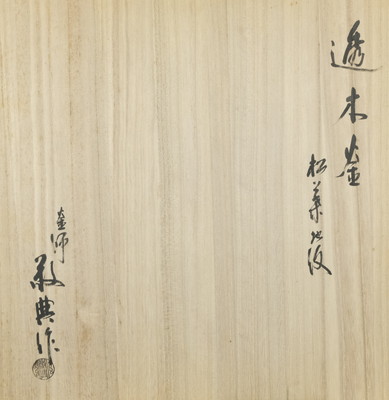 透木釜
松葉地紋
釜師
敬典作